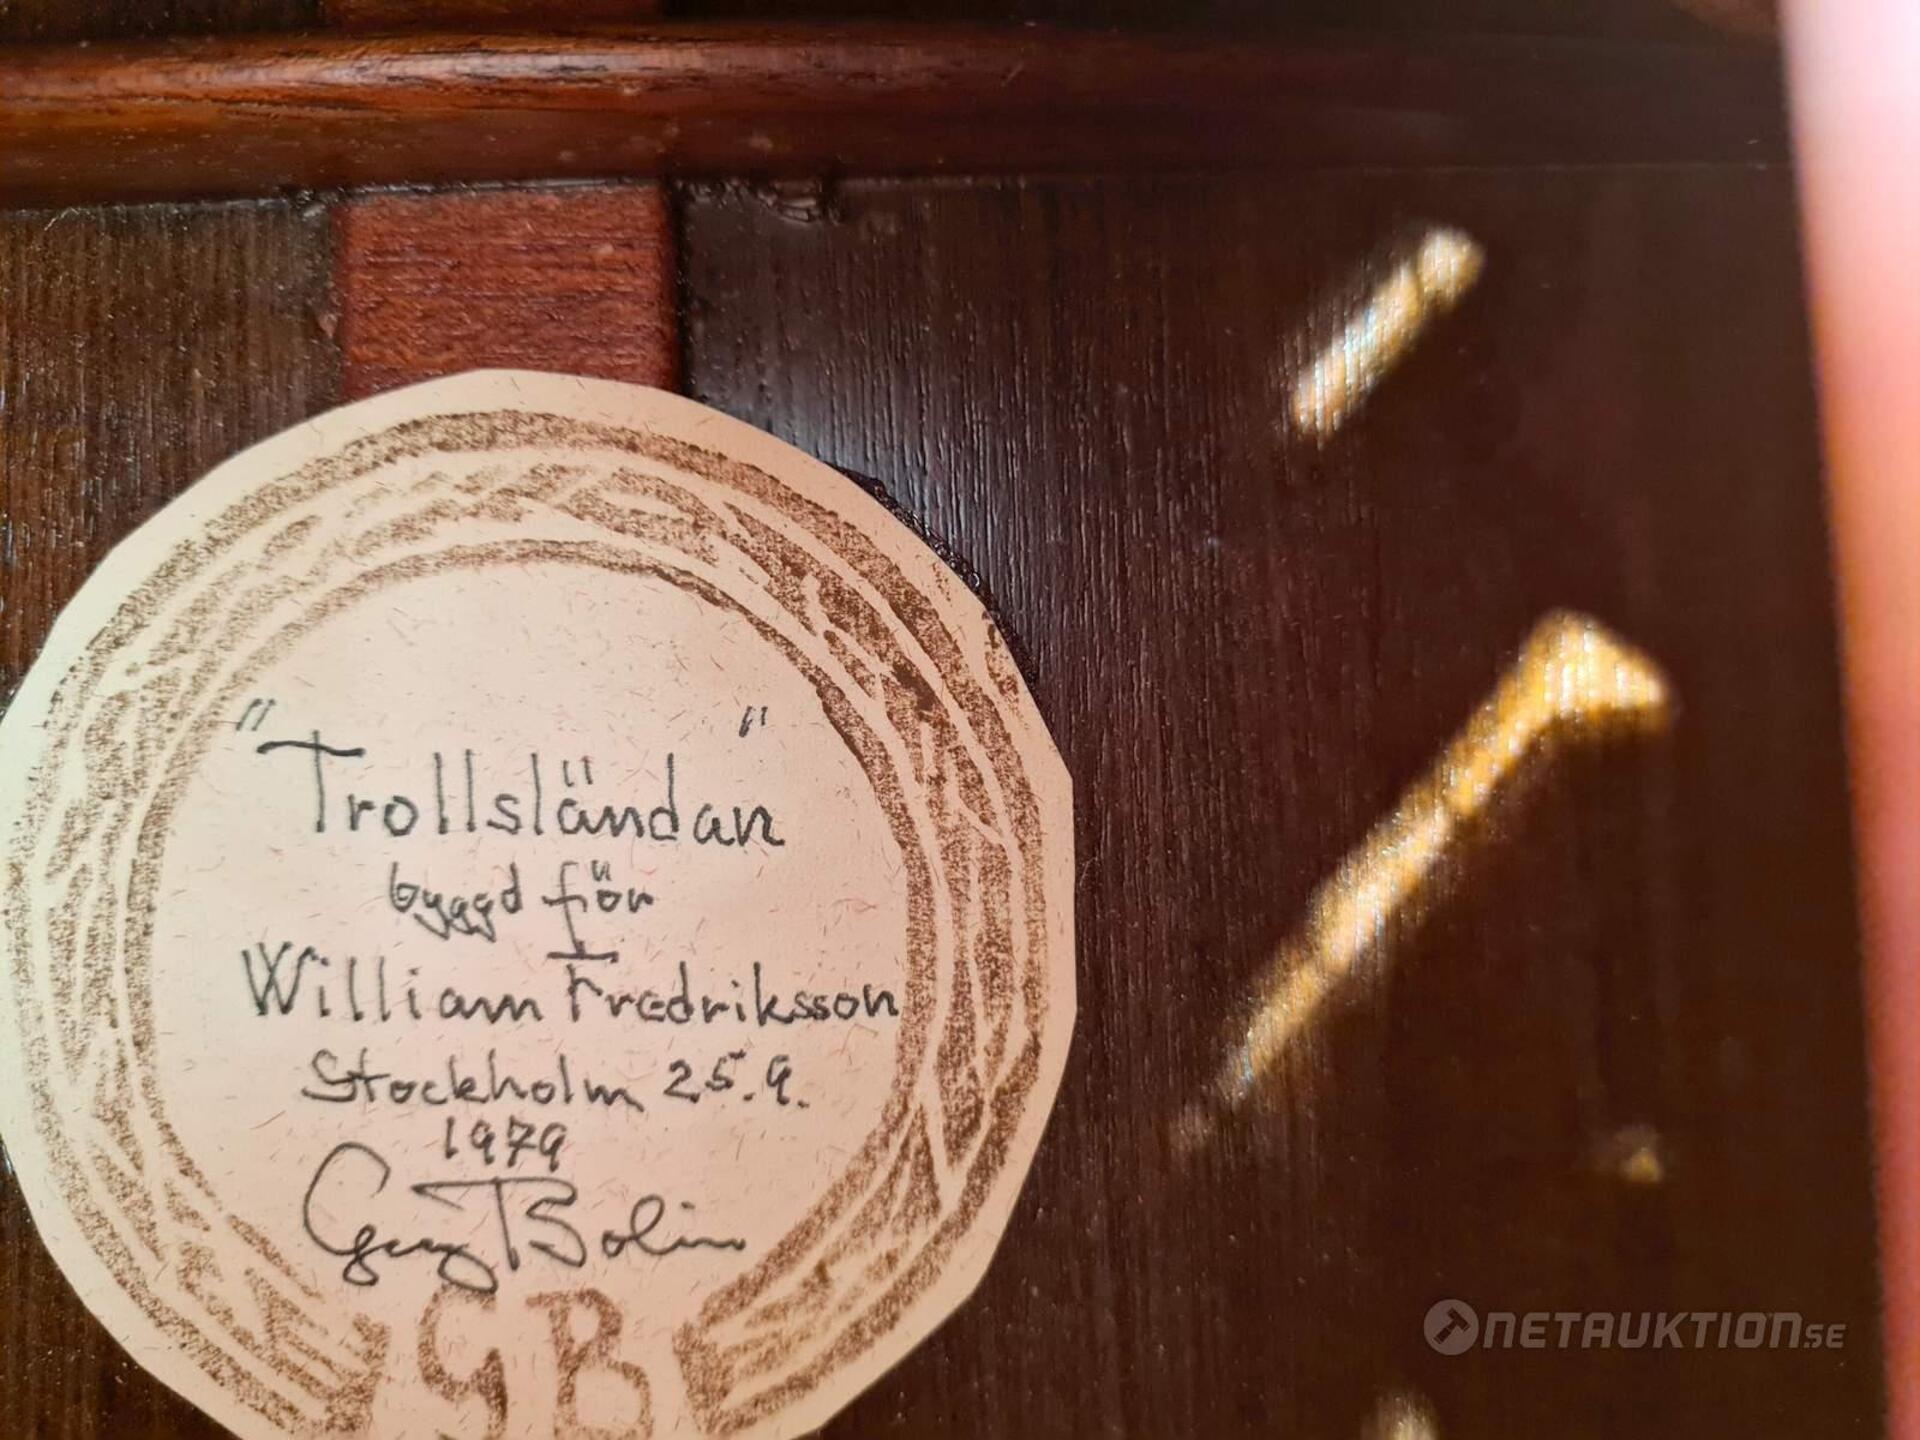 "Trollsländan"
byggd för
William Fredriksson
Stockholm 25.9.
1979
Georg Bolin
GB
NETAUKTION.SE